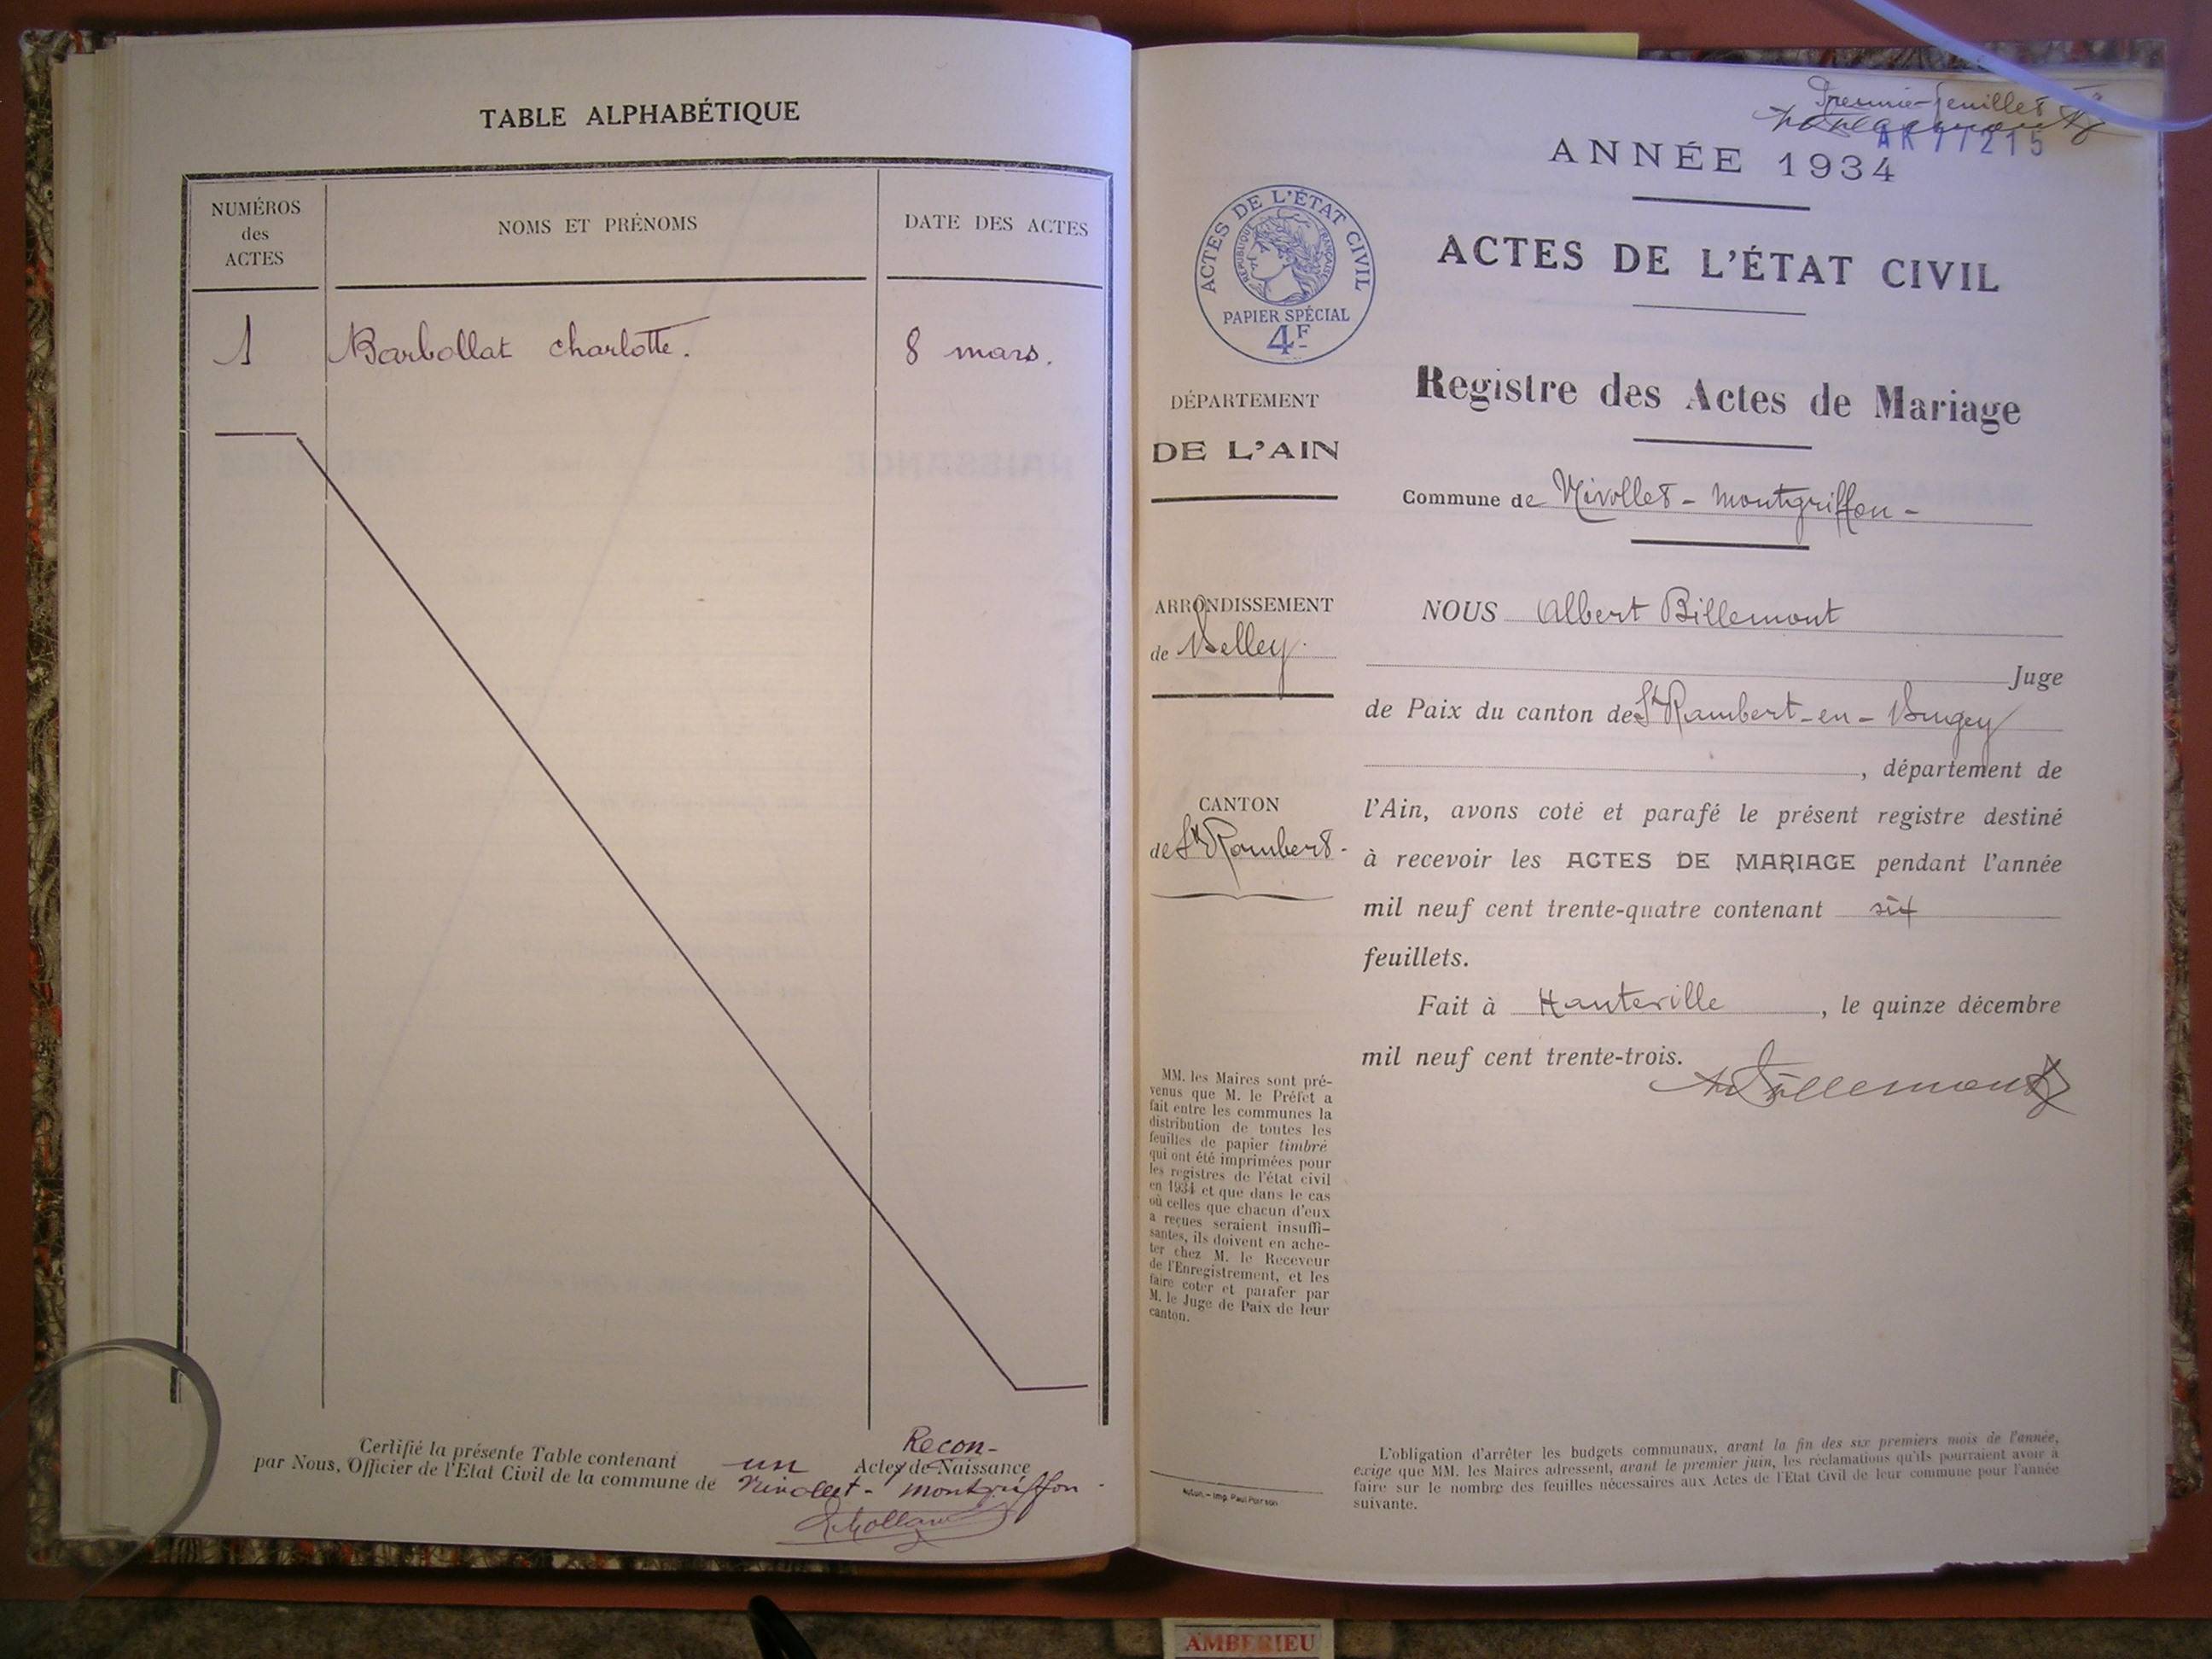 TABLE ALPHABÉTIQUE
NUMÉROS
des
ACTES
NOMS ET PRÉNOMS
DATE DES ACTES
1 Barbollat charlotte. 8 mars.
Recon-
Certifié la présente Table contenant un Actes de Naissance
par Nous, Officier de l'Etat Civil de la commune de Nivollet-Montgriffon.
Premier feuillet
AR 77215
ANNÉE 1934
ACTES DE L'ÉTAT CIVIL
RÉPUBLIQUE FRANÇAISE
PAPIER SPÉCIAL
4F
ACTES DE L'ÉTAT CIVIL
Registre des Actes de Mariage
DÉPARTEMENT
DE L'AIN
Commune de Nivollet-Montgriffon-
ARRONDISSEMENT
de Belley.
CANTON
de St Rambert.
NOUS Albert Billemont
Juge
de Paix du canton de St Rambert-en-Bugey
, département de
l'Ain, avons coté et parafé le présent registre destiné
à recevoir les ACTES DE MARIAGE pendant l'année
mil neuf cent trente-quatre contenant six
feuillets.
Fait à Hauteville, le quinze décembre
mil neuf cent trente-trois.
ABillemont
MM. les Maires sont pré-
venus que M. le Préfet a
fait entre les communes la
distribution de toutes les
feuilles de papier timbré
qui ont été imprimées pour
les registres de l'état civil
en 1934 et que dans le cas
où celles que chacun d'eux
a reçues seraient insuffi-
santes, ils doivent en ache-
ter chez M. le Receveur
de l'Enregistrement, et les
faire coter et parafer par
M. le Juge de Paix de leur
canton.
L'obligation d'arrêter les budgets communaux, avant la fin des six premiers mois de l'année,
exige que MM. les Maires adressent, avant le premier juin, les réclamations qu'ils pourraient avoir à
faire sur le nombre des feuilles nécessaires aux Actes de l'Etat Civil de leur commune pour l'année
suivante.
Imp. Paul
AMBERIEU